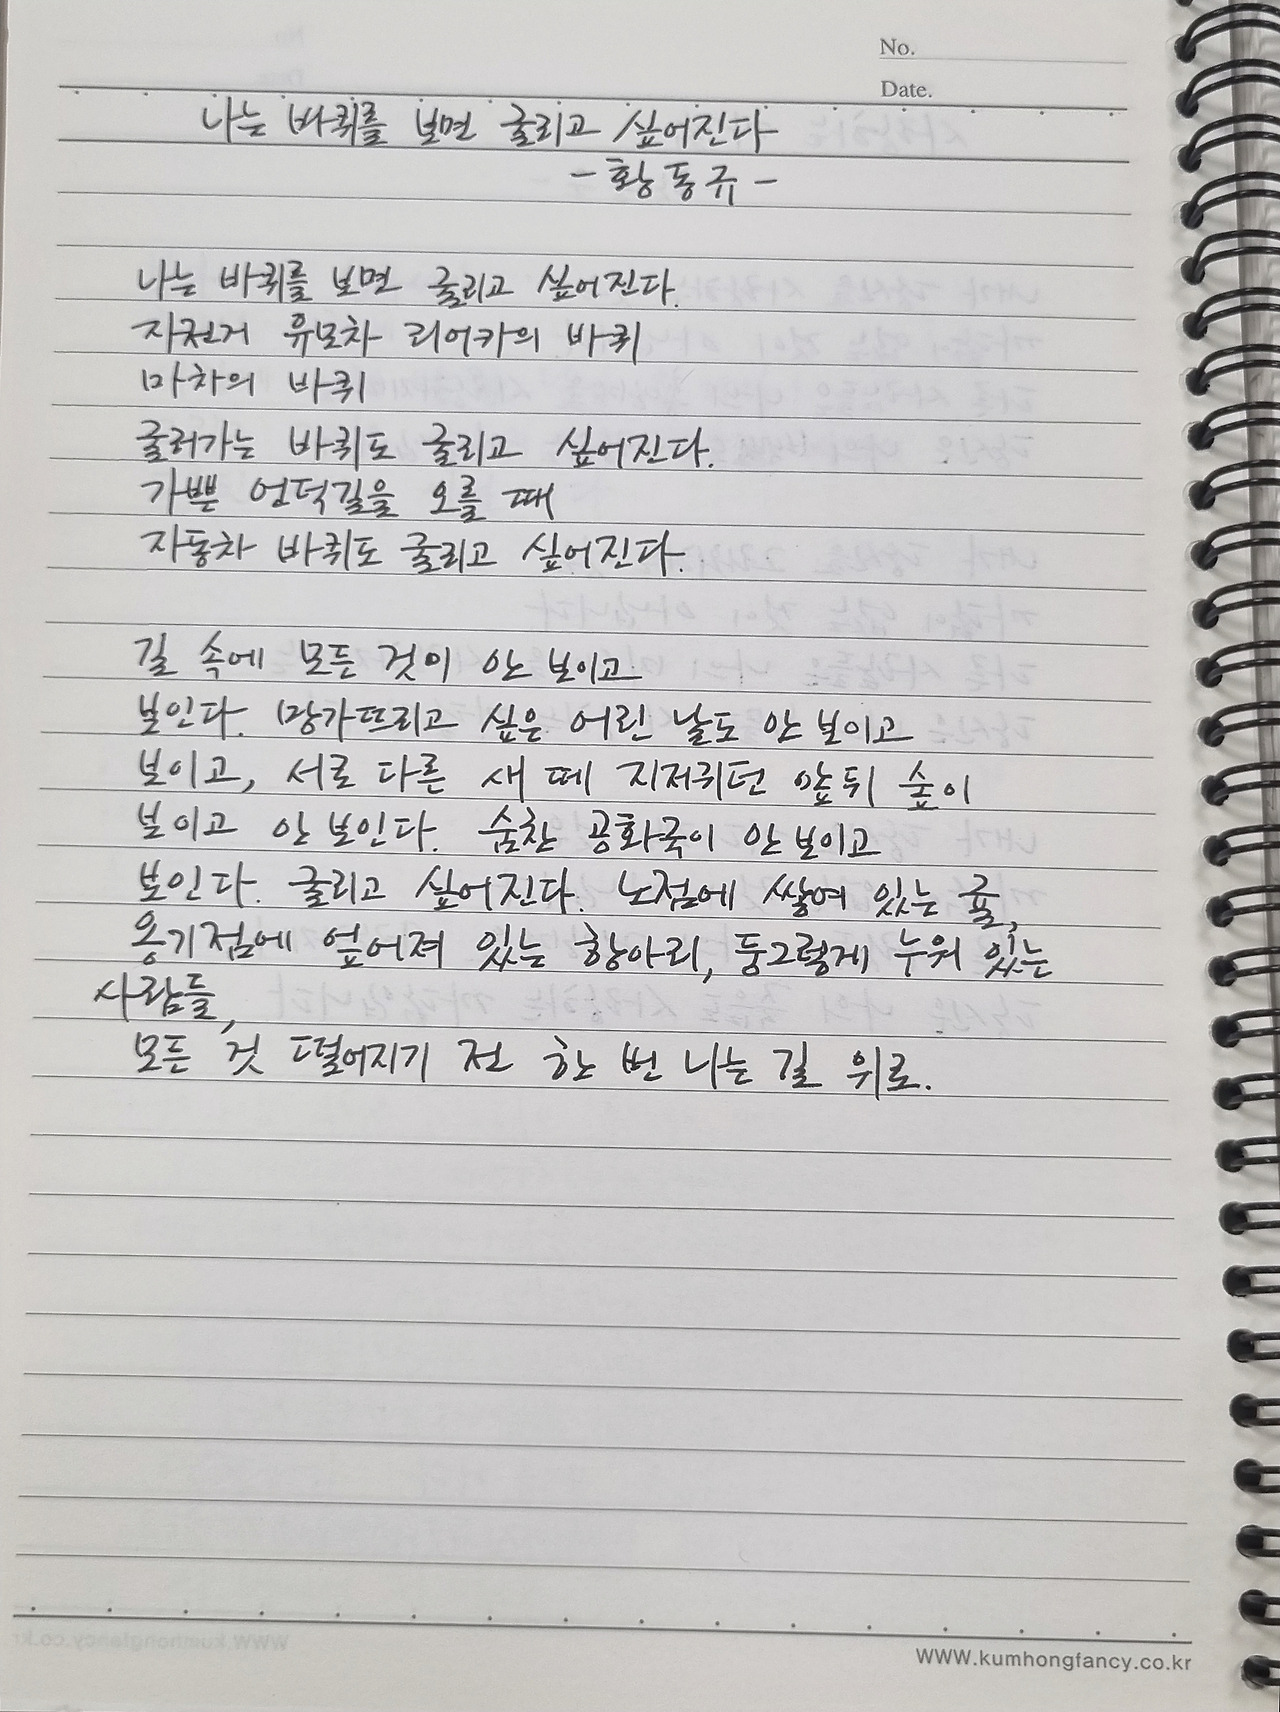 No.
Date.
나는 바퀴를 보면 굴리고 싶어진다
- 황동규 -
나는 바퀴를 보면 굴리고 싶어진다.
자전거 유모차 리어카의 바퀴
마차의 바퀴
굴러가는 바퀴도 굴리고 싶어진다.
가쁜 언덕길을 오를 때
자동차 바퀴도 굴리고 싶어진다.
길 속에 모든 것이 안 보이고
보인다. 망가뜨리고 싶은 어린 날도 안 보이고
보이고, 서로 다른 새 떼 지저귀던 앞뒤 숲이
보이고 안 보인다. 숨찬 공화국이 안 보이고
보인다. 굴리고 싶어진다. 노점에 쌓여 있는 귤,
옹기점에 엎어져 있는 항아리, 둥그렇게 누워 있는
사람들,
모든 것 떨어지기 전 한 번 나는 길 위로.
www.kumhongfancy.co.kr